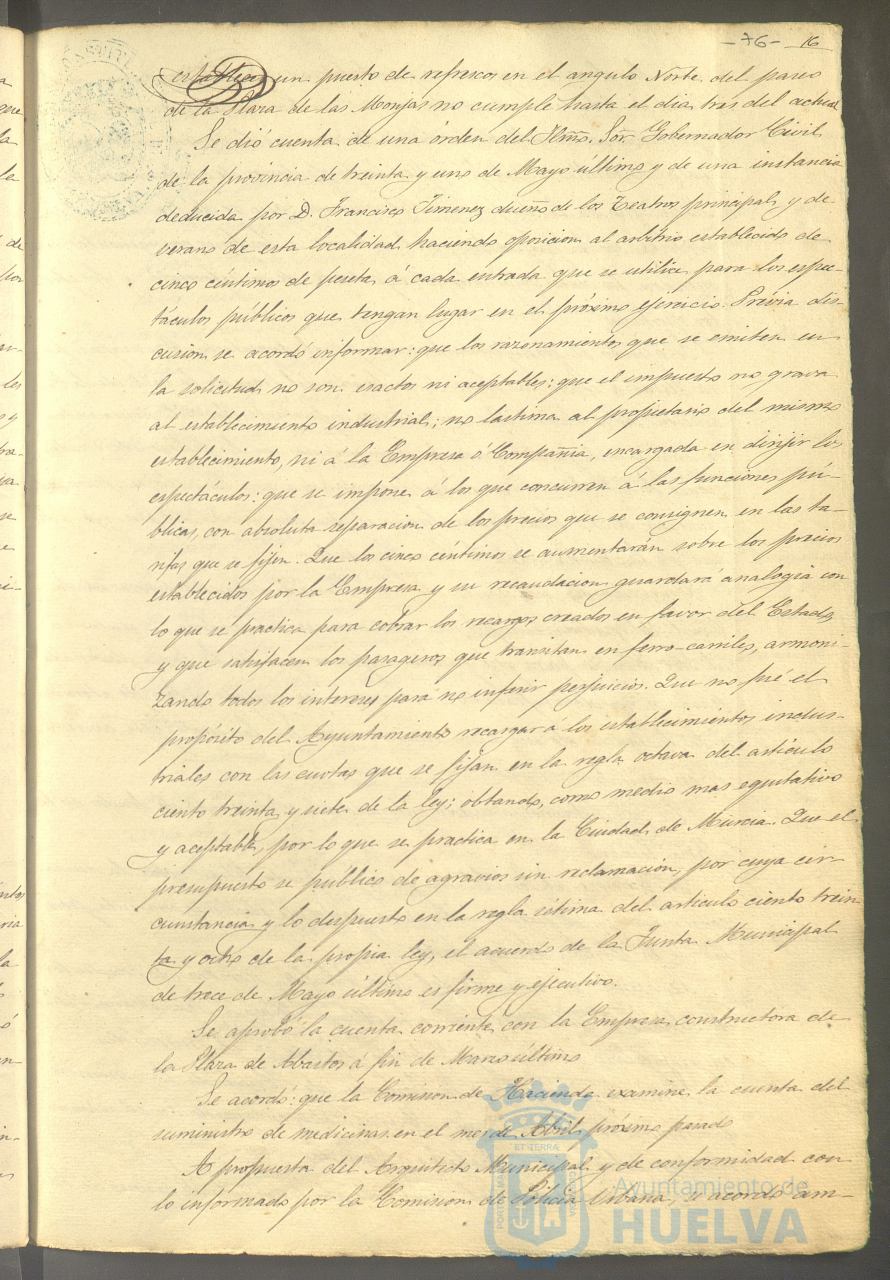 -76- 16
establecer un puesto de refrescos en el angulo Norte del paseo
de la Plaza de las Monjas no cumple hasta el dia tres del actual
Se dió cuenta de una órden del Ilmo. Sor. Gobernador Civil
de la provincia de treinta y uno de Mayo último y de una instancia
deducida por D. Francisco Jimenez dueño de los Teatros principal y de
verano de esta localidad haciendo oposicion al arbitrio establecido de
cinco céntimos de peseta á cada entrada que se utilice para los espec-
táculos públicos que tengan lugar en el próximo ejercicio. Prévia dis-
cusion se acordó informar: que los razonamientos que se emiten en
la solicitud no son esactos ni aceptables; que el impuesto no grava
al establecimiento industrial; no lastima al propietario del mismo
establecimiento, ni á la Empresa ó Compañia, encargada en dirijir los
espectáculos: que se impone á los que concurren á las funciones pú-
blicas, con absoluta separacion de los precios que se consignen en las ta-
rifas que se fijen. Que los cinco céntimos se aumentarán sobre los precios
establecidos por la Empresa y su recaudacion guardará analogia con
lo que se practica para cobrar los recargos creados en favor del Estado,
y que satisfacen los pasageros que transitan en ferro-carriles, armoni-
zando todos los intereses para no inferir perjuicios. Que no fué el
propósito del Ayuntamiento recargar á los establecimientos indus-
triales con las cuotas que se fijan en la regla octava del artículo
ciento treinta y siete de la ley; obtando, como medio mas equitativo
y aceptable, por lo que se practica en la Ciudad de Murcia. Que el
presupuesto se publicó de agravios sin reclamación, por cuya cir-
cunstancia y lo despuesto en la regla sétima del articulo ciento trein
ta y ocho de la propia ley, el acuerdo de la Junta Municipal
de trece de Mayo último es firme y ejecutivo.
Se aprobó la cuenta corriente con la Empresa constructora de
la Plaza de Abastos á fin de Marzo último
Se acordó: que la Comision de Hacienda examine la cuenta del
suministro de medicinas en el mes de Abril próximo pasado
A propuesta del Arquitecto Municipal y de conformidad con
lo informado por la Comision de Policia Urbana, se acordó am-
Ayuntamiento de
HUELVA